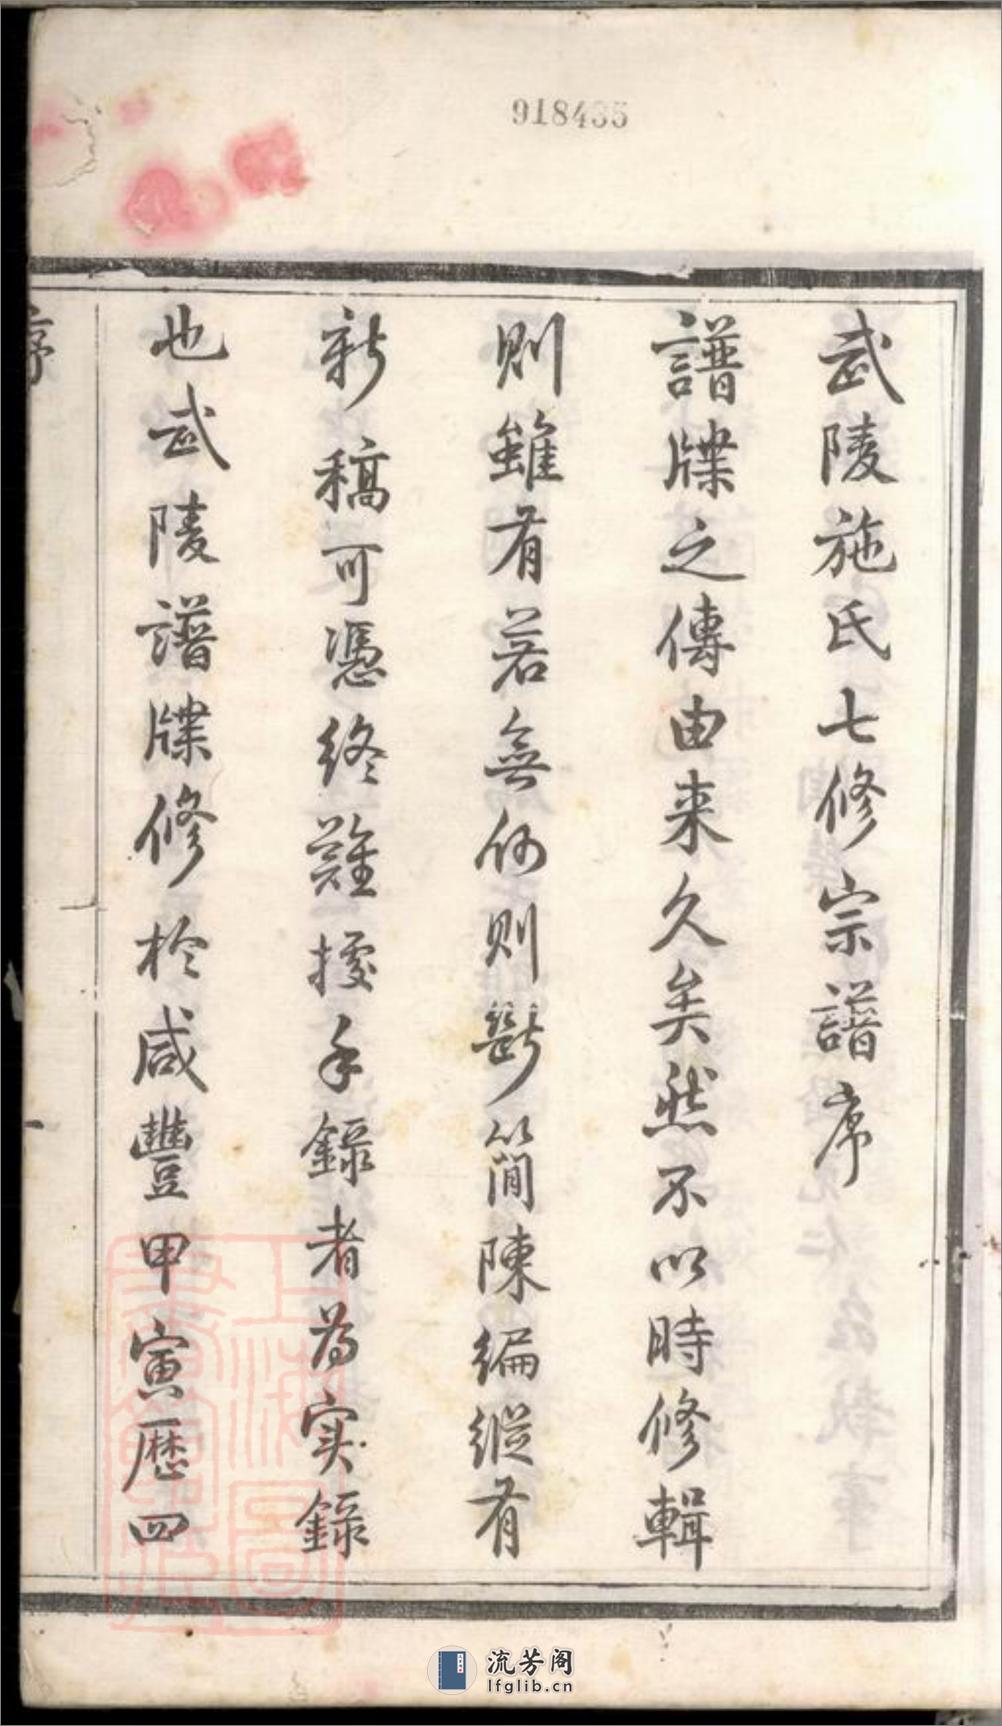 918435
武陵施氏七修宗譜序
譜牒之傳由来久矣然不以時修輯
則雖有若無何則斷簡陳編縱有
新稿可憑終難援手錄者為实錄
也武陵譜牒修於咸豐甲寅歷四
序
一
上海圖書館藏
流芳阁
lfglib.cn